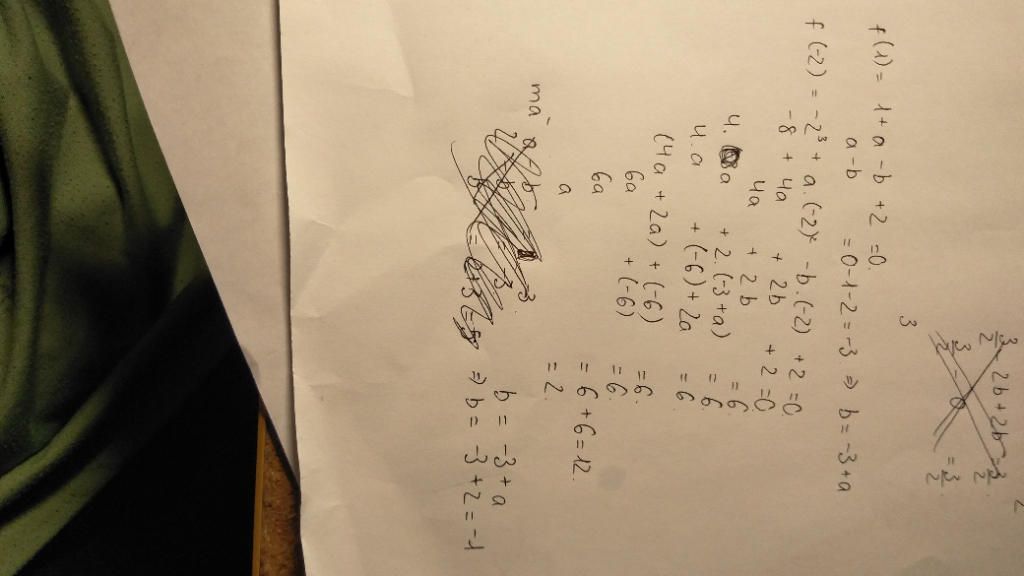 3
f(1) = 1 + a - b + 2 = 0.
a - b = 0 - 1 - 2 = -3 ⇒ b = -3 + a
f(-2) = -2³ + a.(-2)² - b.(-2) + 2 = 0
-8 + 4a + 2b + 2 = 0
4a + 2b = 6
4. a + 2.(-3+a) = 6.
4. a + (-6) + 2a = 6
(4a + 2a) + (-6) = 6.
6a + (-6) = 6.
6a = 6 + 6 = 12.
a = 2.
mà b = -3 + a
⇒ b = -3 + 2 = -1